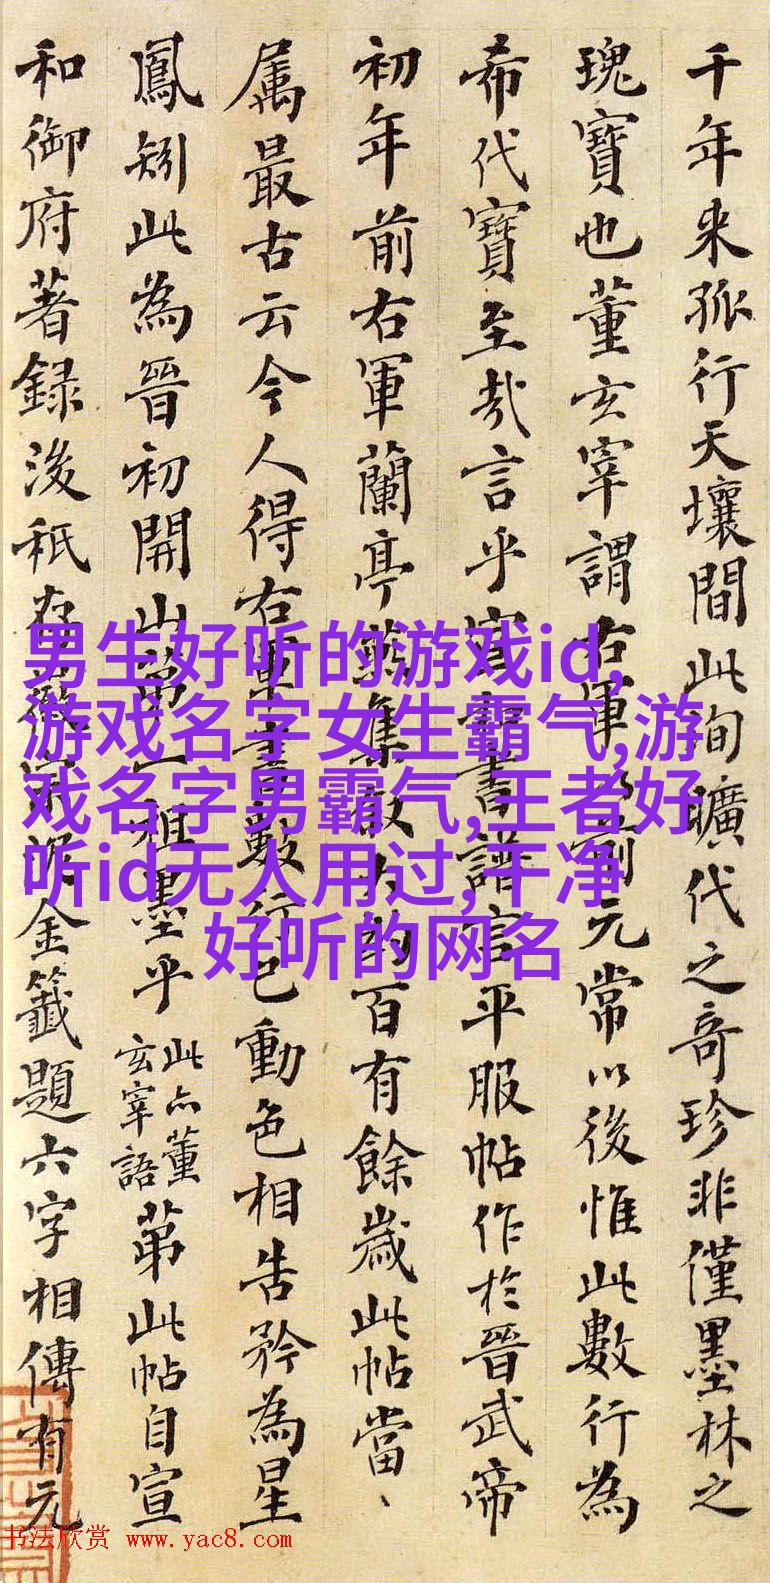 千年来孤行天壤間此洵曠代之奇珍非僅墨林之
瑰寶也董玄宰謂右軍以前元常以後惟此數行為
希代寶至哉言乎寶章書譜信平服帖作於晉武帝
初年前右軍蘭亭燕集敘大約百有餘歲此帖當、
属最古云今人得右軍書數行已動色相告矜為星
鳳矧此為晉初開山第一祖墨乎
此亦董
玄宰語
苐此帖自宣
和御府著録後秖存徽宗泥金籤題六字相傳有元
男生好听的游戏id,
游戏名字女生霸气,游
戏名字男霸气,王者好
听id无人用过,干净
好听的网名
书法欣赏 www.yac8.com